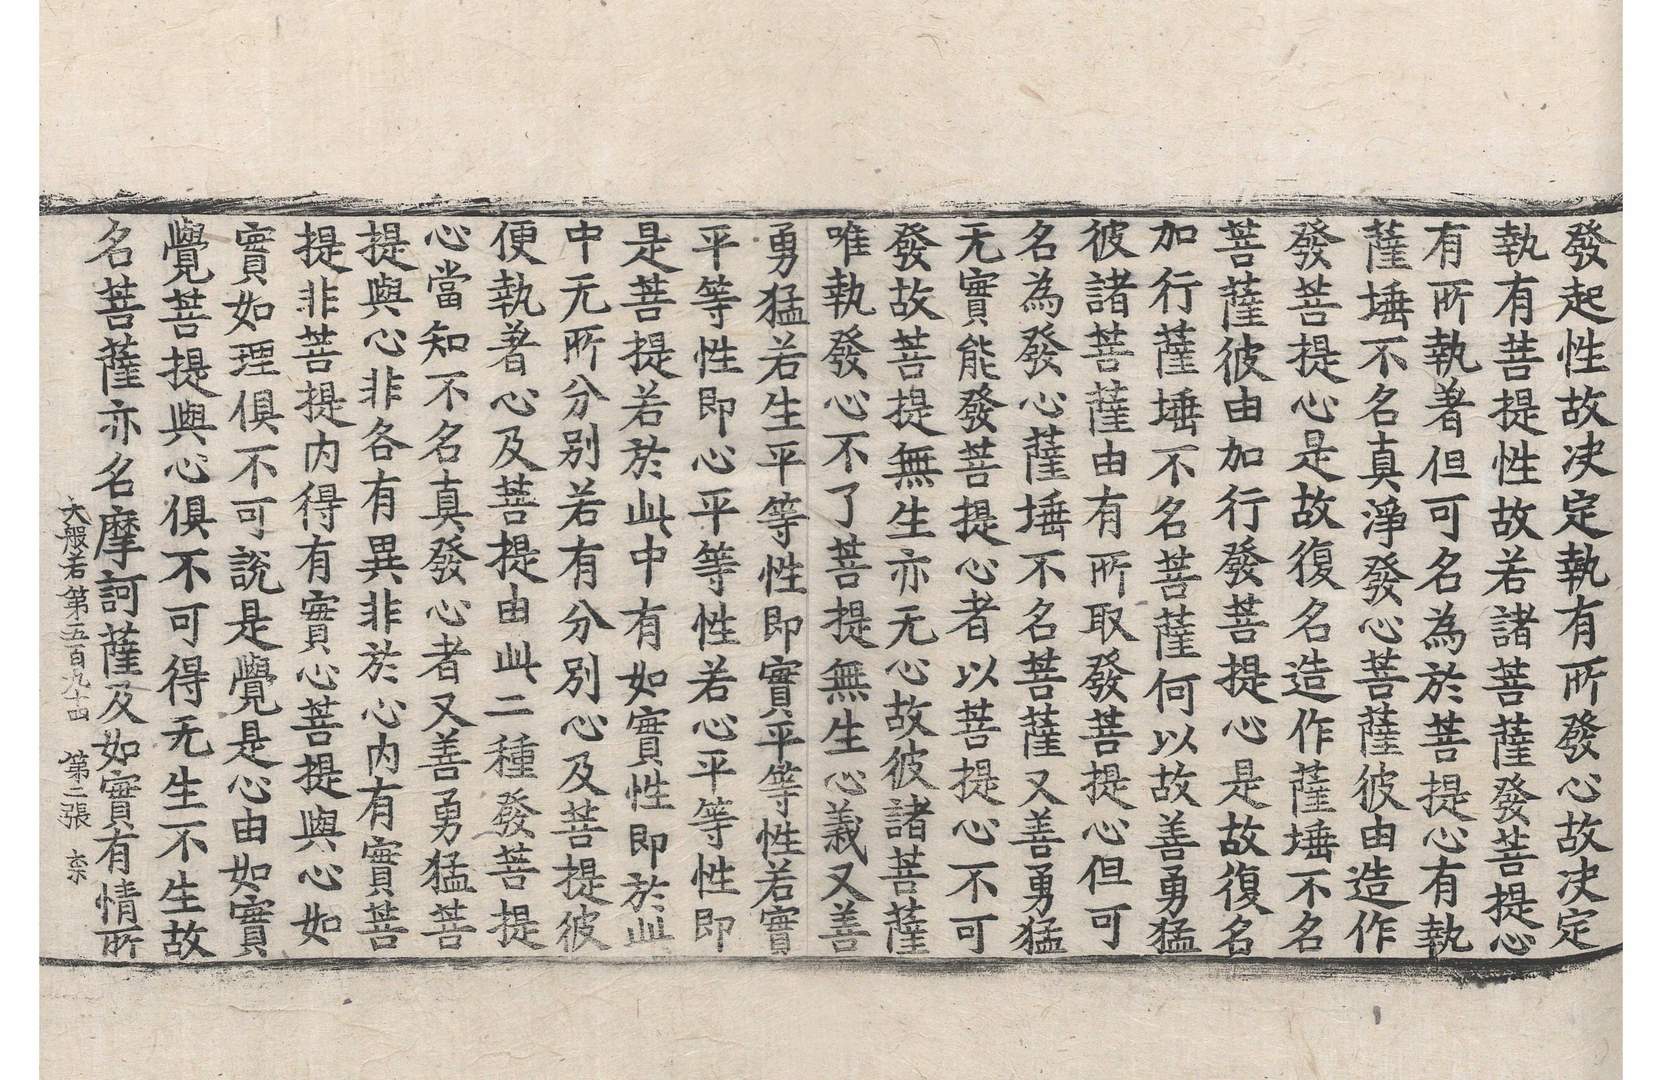 發起性故决定執有所發心故决定
執有菩提性故若諸菩薩發菩提心
有所執著但可名為於菩提心有執
薩埵不名真淨發心菩薩彼由造作
發菩提心是故復名造作薩埵不名
菩薩彼由加行發菩提心是故復名
加行薩埵不名菩薩何以故善勇猛
彼諸菩薩由有所取發菩提心但可
名為發心薩埵不名菩薩又善勇猛
无實能發菩提心者以菩提心不可
發故菩提無生亦无心故彼諸菩薩
唯執發心不了菩提無生心義又善
勇猛若生平等性即實平等性若實
平等性即心平等性若心平等性即
是菩提若於此中有如實性即於此
中无所分別若有分別心及菩提彼
便執著心及菩提由此二種發菩提
心當知不名真發心者又善勇猛菩
提與心非各有異非於心內有實菩
提非菩提內得有實心菩提與心如
實如理俱不可說是覺是心由如實
覺菩提與心俱不可得无生不生故
名菩薩亦名摩訶薩及如實有情所
大般若第五百九十四 第二張 柰